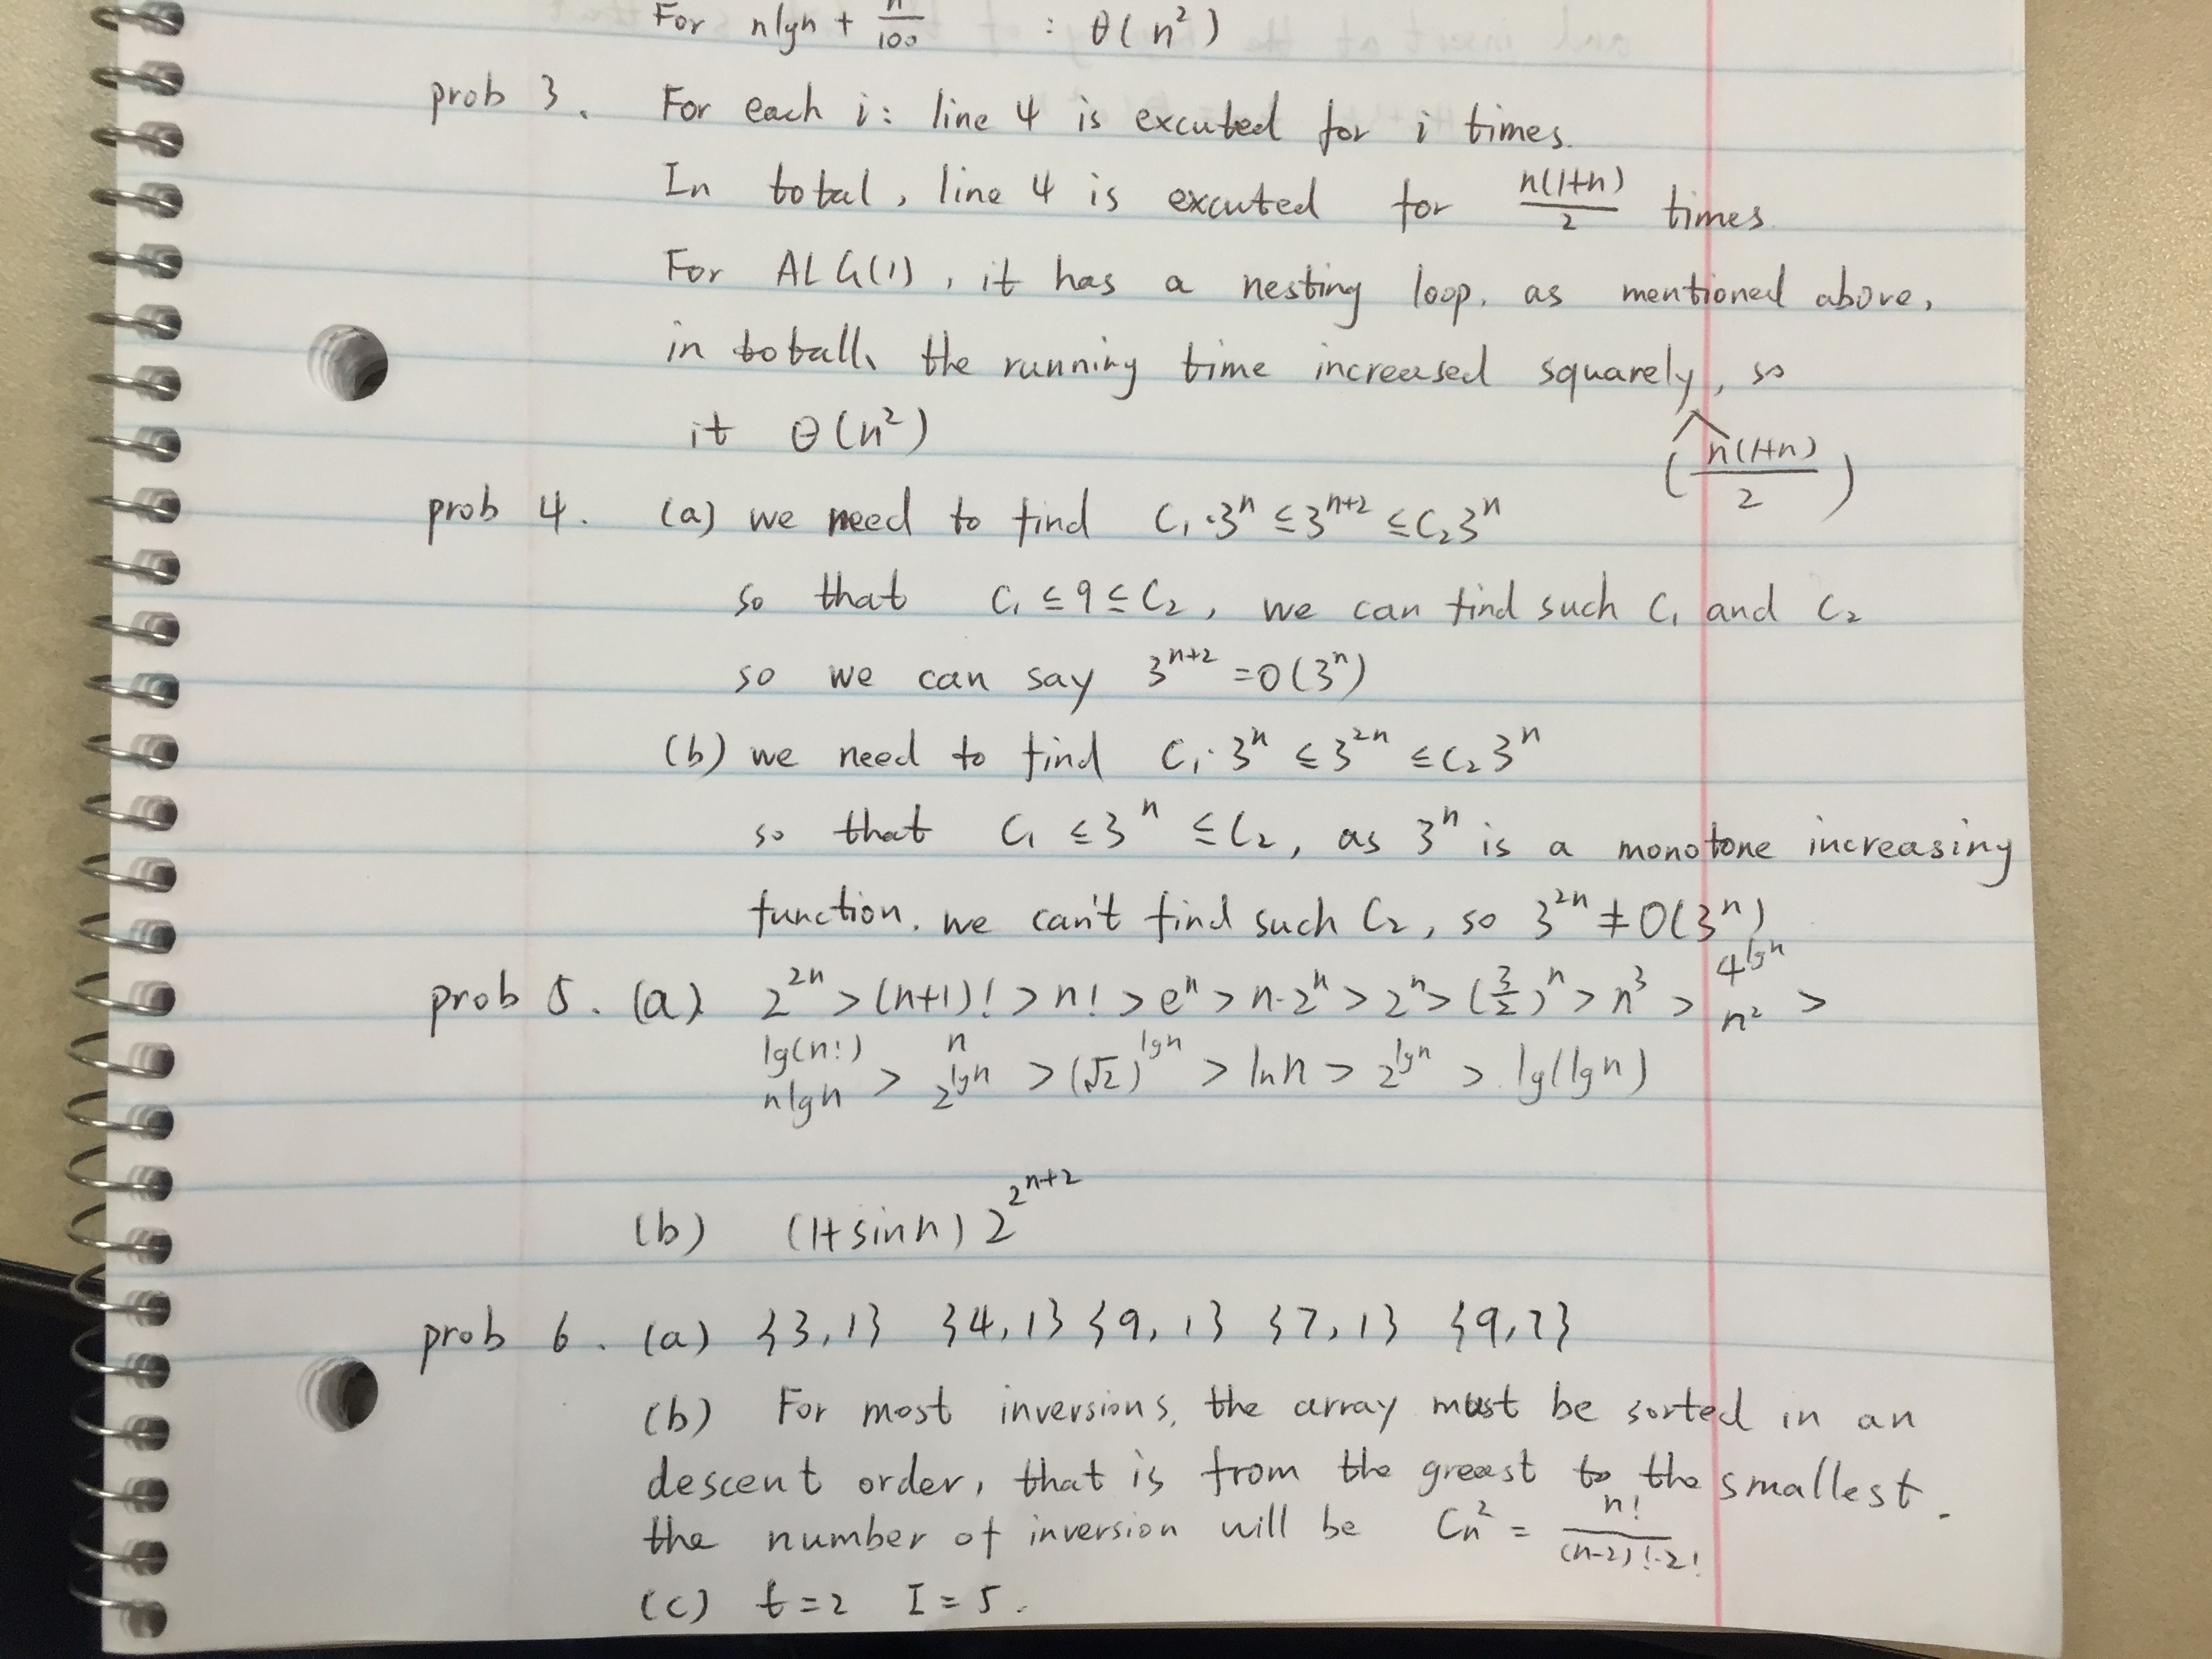 For nlgn + n/100 : θ(n²)
prob 3. For each i: line 4 is excuted for i times.
In total, line 4 is excuted for n(1+n)/2 times.
For ALG(1), it has a nesting loop. as mentioned above,
in totall, the running time increased squarely, so
it θ(n²) (n(1+n)/2)
prob 4. (a) we need to find C₁·3ⁿ ≤ 3ⁿ⁺² ≤ C₂3ⁿ
so that C₁ ≤ 9 ≤ C₂, we can find such C₁ and C₂
so we can say 3ⁿ⁺² = O(3ⁿ)
(b) we need to find C₁·3ⁿ ≤ 3²ⁿ ≤ C₂3ⁿ
so that C₁ ≤ 3ⁿ ≤ C₂, as 3ⁿ is a monotone increasing
function. we can't find such C₂, so 3²ⁿ ≠ O(3ⁿ)
prob 5. (a) 2^2n > (n+1)! > n! > eⁿ > n·2ⁿ > 2ⁿ > (3/2)ⁿ > n³ > 4^lgn n² >
lg(n!) nlgn > n 2^lgn > (√2)^lgn > ln n > 2^lgn > lg(lgn)
(b) (1+sinn) 2^2^n+2
prob 6. (a) {3,1} {4,1} {9,1} {7,1} {9,7}
(b) For most inversions, the array must be sorted in an
descent order, that is from the greast to the smallest.
the number of inversion will be Cn² = n!/(n-2)!·2!
(c) t=2 I=5.